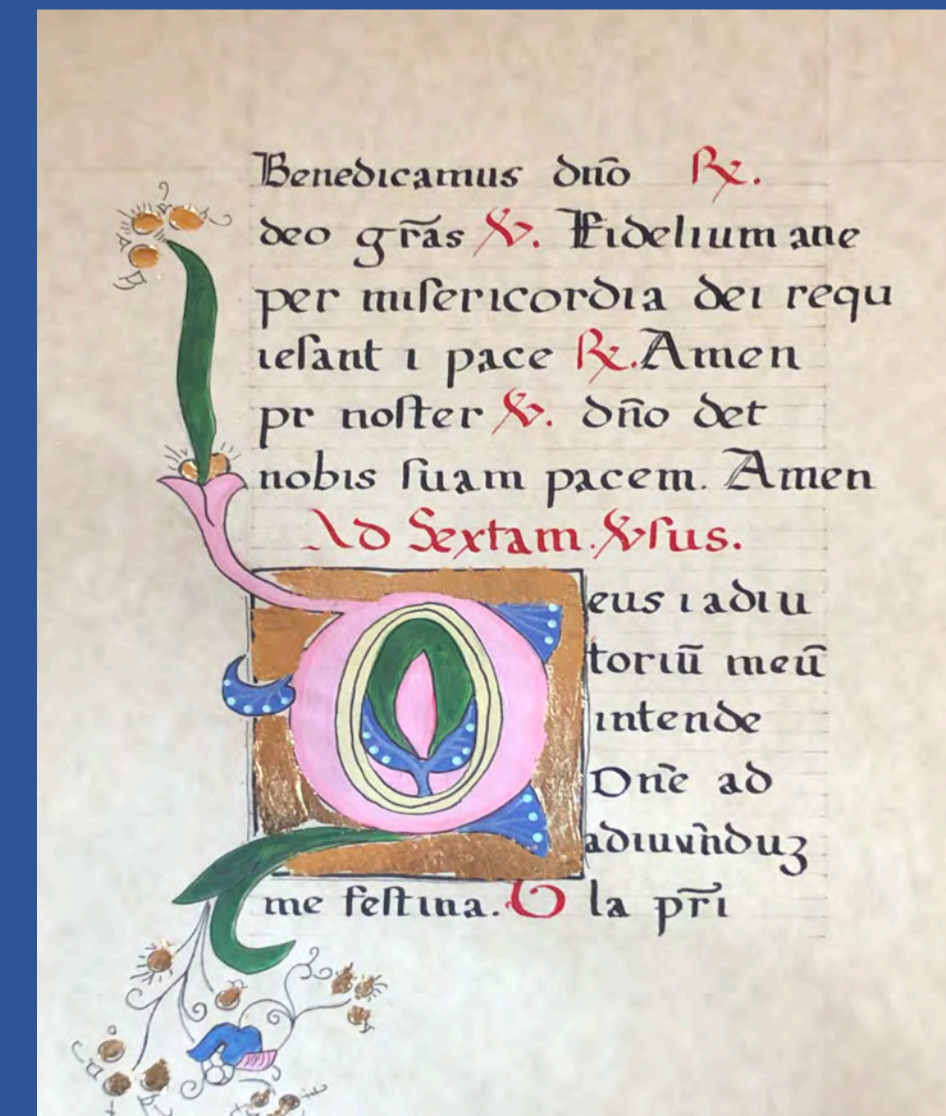 Benedicamus dn̄o ℟.
deo gr̄as ℣. Fidelium ane
per miſericordia dei requ
ieſant i pace ℟. Amen
pr noſter ℣. dn̄o det
nobis ſuam pacem. Amen
Ad Sextam. ℣ſus.
Deus i adiu
toriū meū
intende
Dn̄e ad
adiuvn̄duꝫ
me feſtina. G la pr̄i